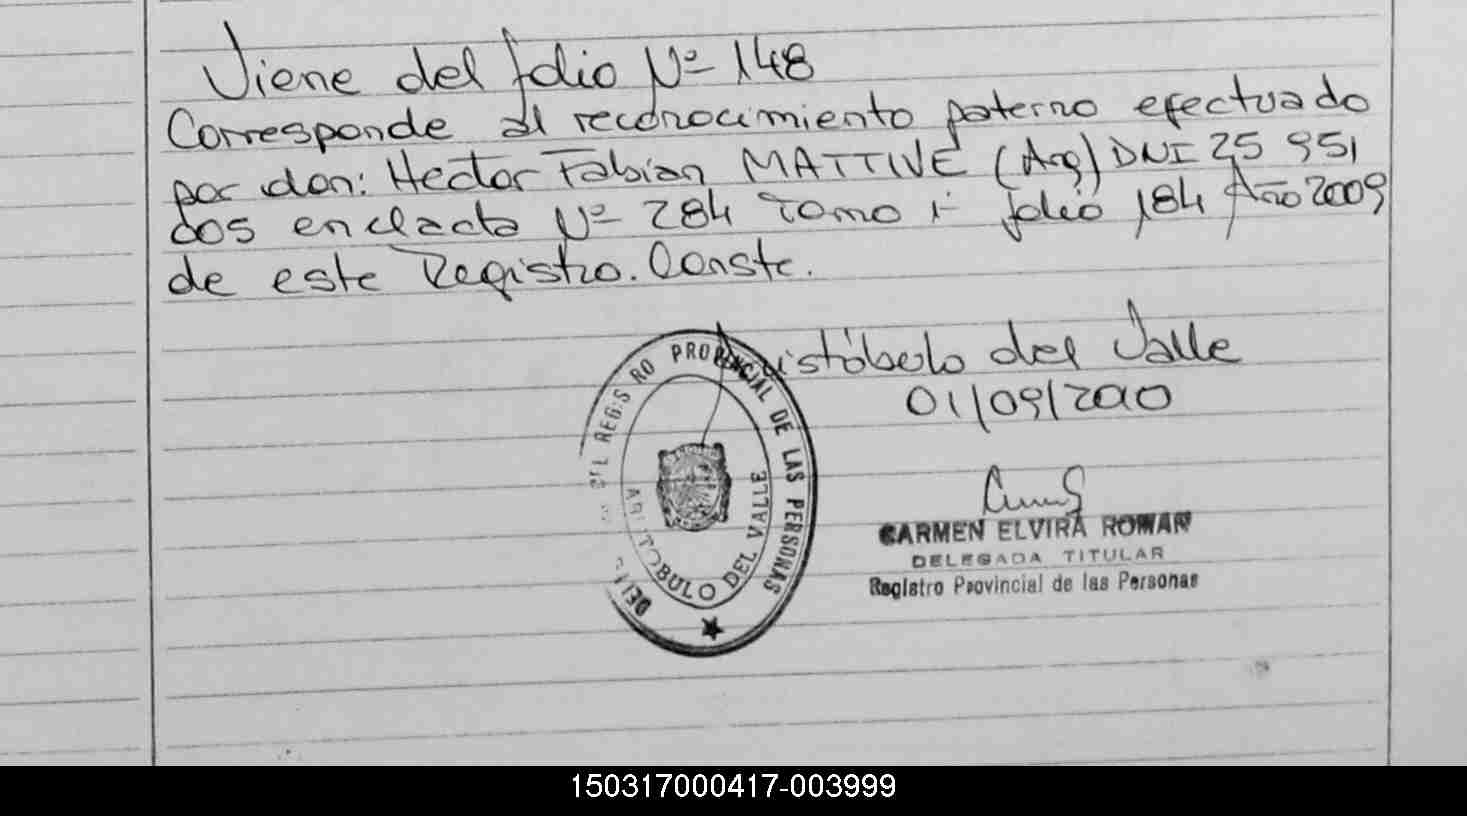 Viene del folio Nº 148
Corresponde al reconocimiento paterno efectuado
por don: Hector Fabian MATTIVE (Arg) DNI 25 951
005 en el acta Nº 284 Tomo 1º folio 184 Año 2009
de este Registro. Conste.
Aristóbulo del Valle
01/09/2010
REGISTRO PROVINCIAL DE LAS PERSONAS
ARISTOBULO DEL VALLE
CARMEN ELVIRA ROMAN
DELEGADA TITULAR
Registro Provincial de las Personas
150317000417-003999